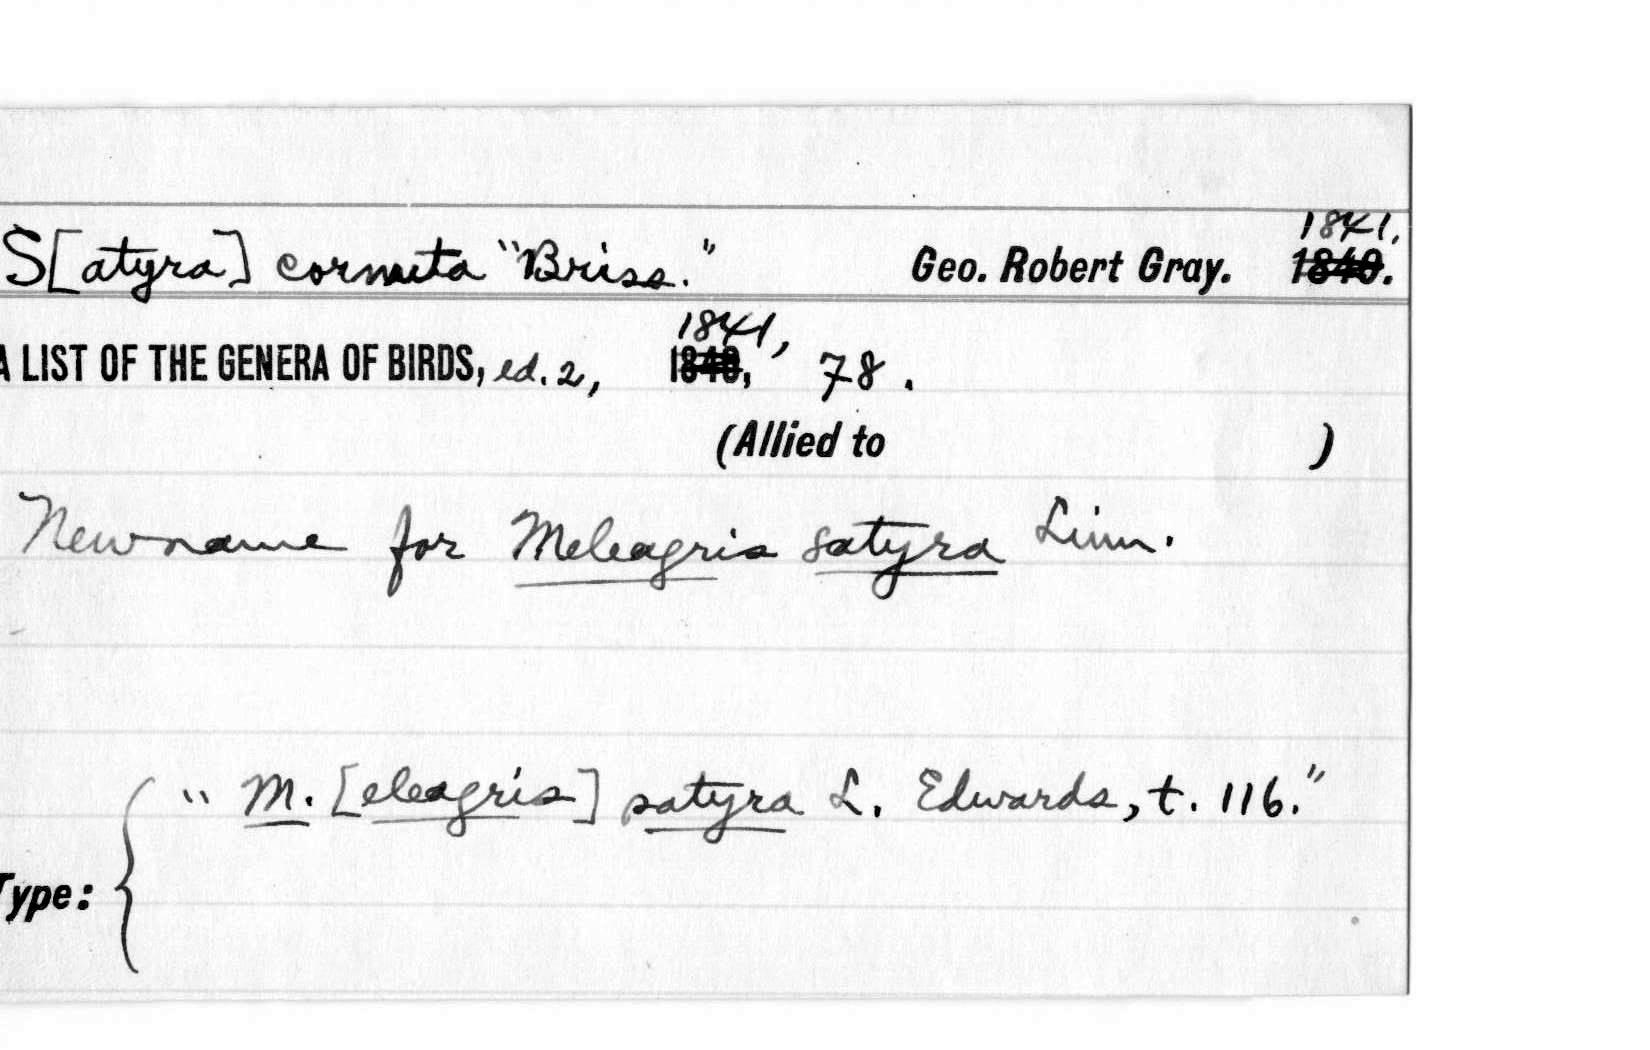 1841,
S[atyra] cornuta "Briss." Geo. Robert Gray. 1840.
1841,
A LIST OF THE GENERA OF BIRDS, ed. 2, 1840, 78.
(Allied to )
New name for Meleagris satyra Linn.
"M. [eleagris] satyra L. Edwards, t. 116."
Type: